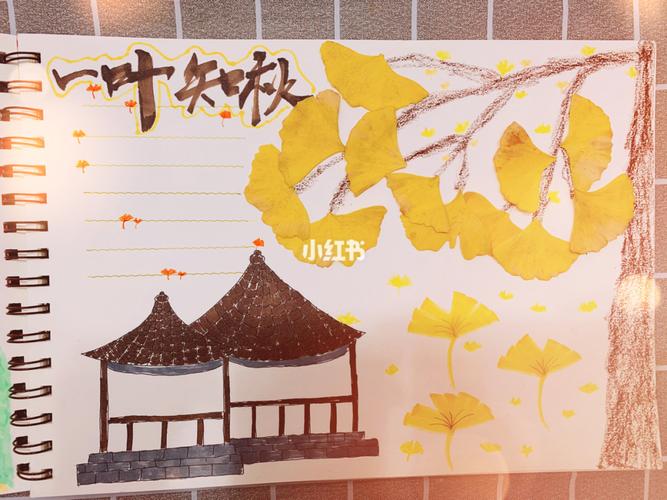 一叶知秋
小红书